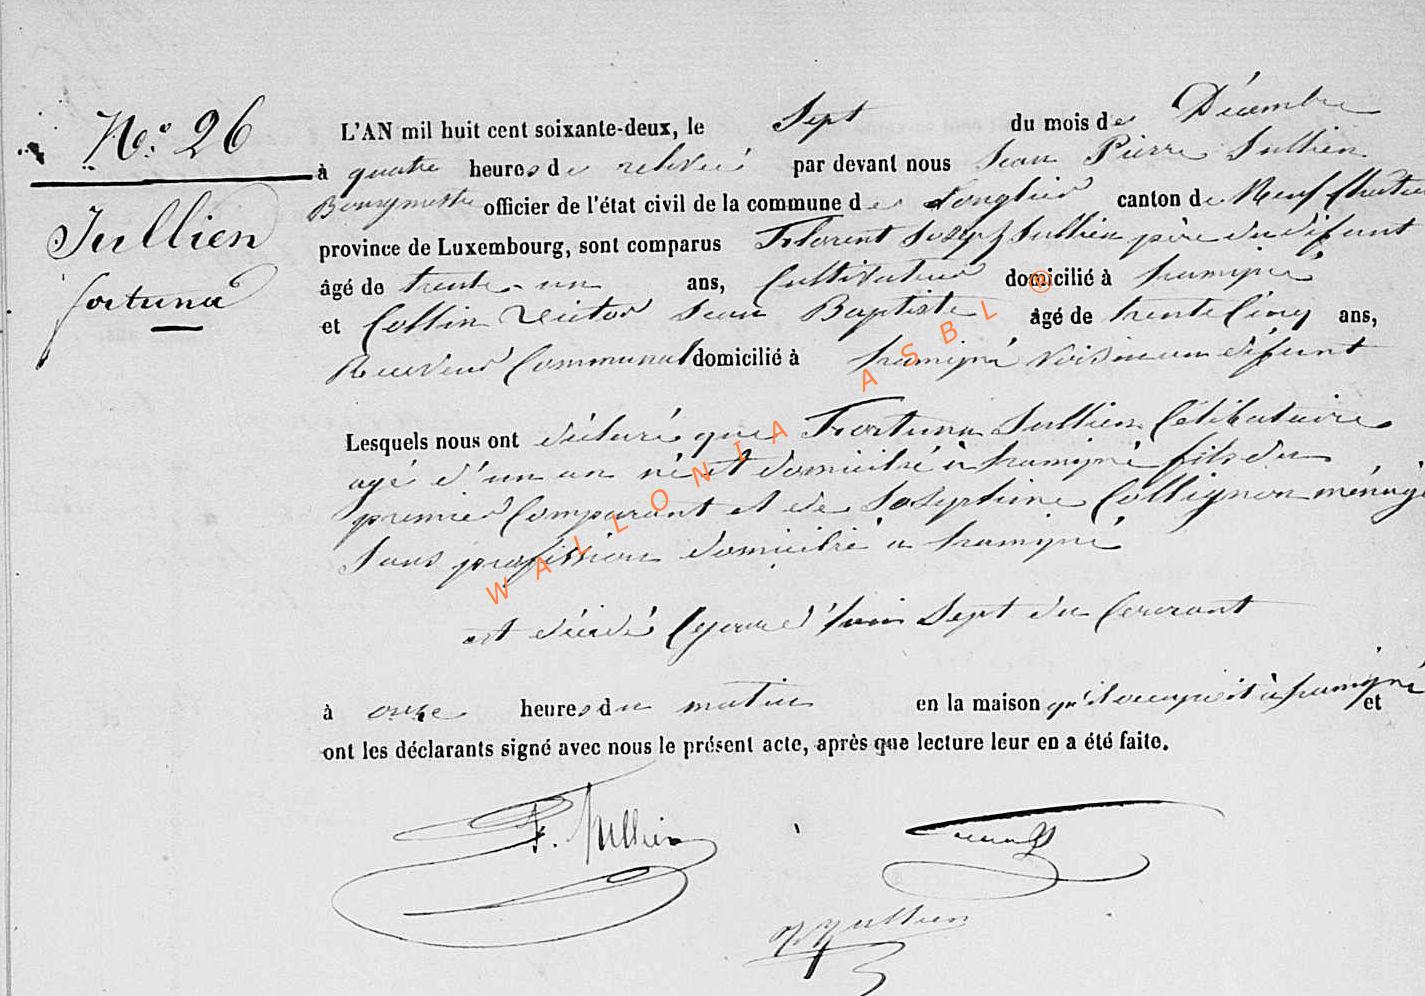 No. 26
Jullien
fortuna
L'AN mil huit cent soixante-deux, le Sept du mois de Décembre
à quatre heures de relevée par devant nous Jean Pierre Jullien
Bourgmestre officier de l'état civil de la commune de Longlier canton de Neufchateau
province de Luxembourg, sont comparus Florent Joseph Jullien père du défunt
âgé de trente-un ans, Cultivateur domicilié à tramigné
et Collin Victor Jean Baptiste âgé de trente Cinq ans,
Receveur Communal domicilié à tramigné voisin du défunt
Lesquels nous ont déclaré que Fortuna Jullien Célibataire
agé d'un an né et domicilié à tramigné fils du
premier Comparant et de Joséphine Collignon ménagè
Sans profession domicilié a tramigné
est décédé Sept du Courant
à onze heures du matin en la maison qu'il occupoit à tramigné et
ont les déclarants signé avec nous le présent acte, après que lecture leur en a été faite.
F. Jullien
JP Jullien
WALLONIA ASBL ®